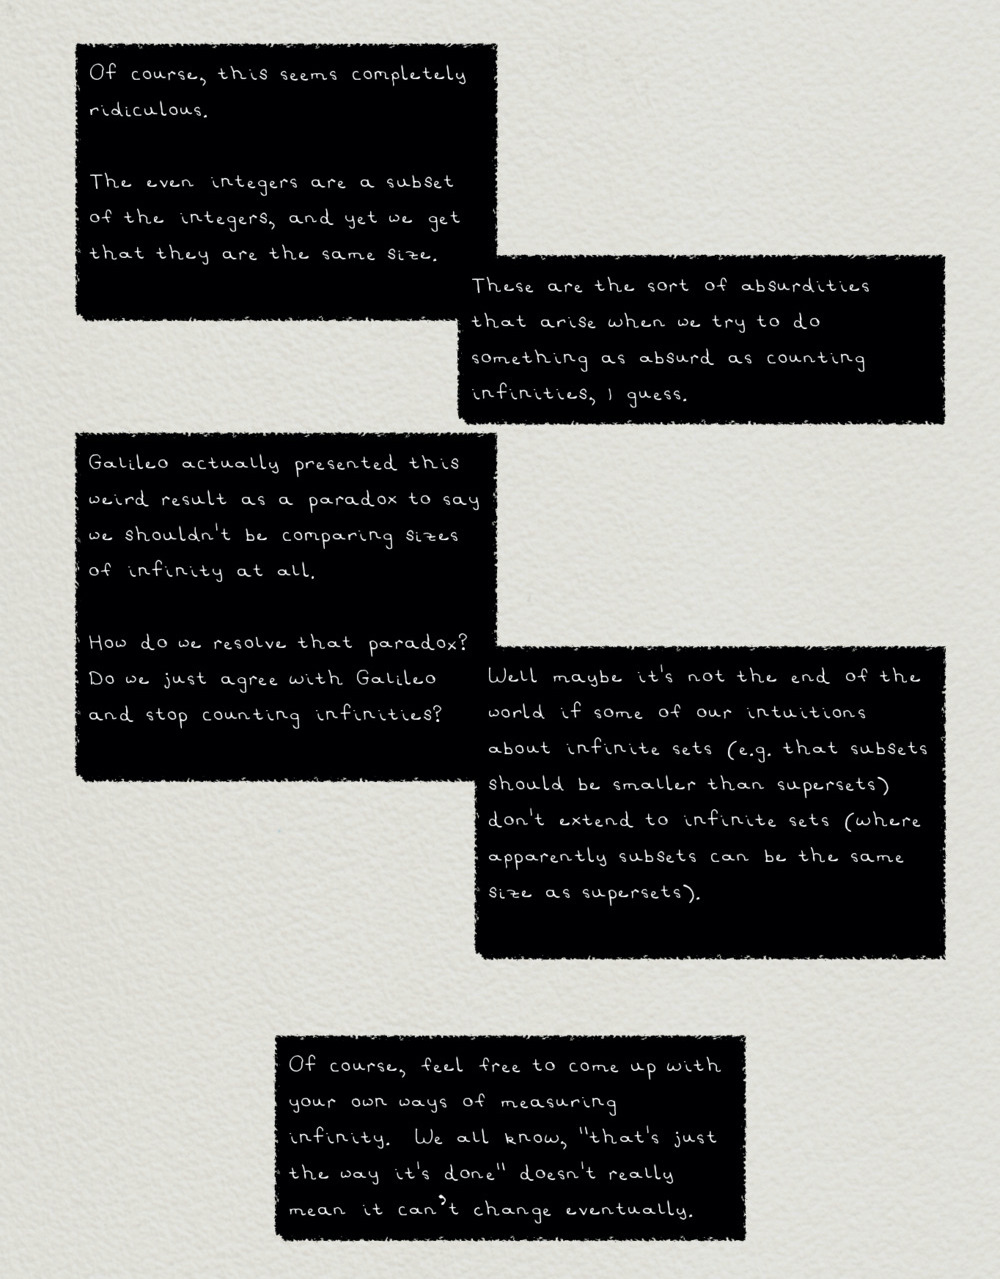 Of course, this seems completely
ridiculous.
The even integers are a subset
of the integers, and yet we get
that they are the same size.
These are the sort of absurdities
that arise when we try to do
something as absurd as counting
infinities, I guess.
Galileo actually presented this
weird result as a paradox to say
we shouldn't be comparing sizes
of infinity at all.
How do we resolve that paradox?
Do we just agree with Galileo
and stop counting infinities?
Well maybe it's not the end of the
world if some of our intuitions
about infinite sets (e.g. that subsets
should be smaller than supersets)
don't extend to infinite sets (where
apparently subsets can be the same
size as supersets).
Of course, feel free to come up with
your own ways of measuring
infinity. We all know, "that's just
the way it's done" doesn't really
mean it can't change eventually.